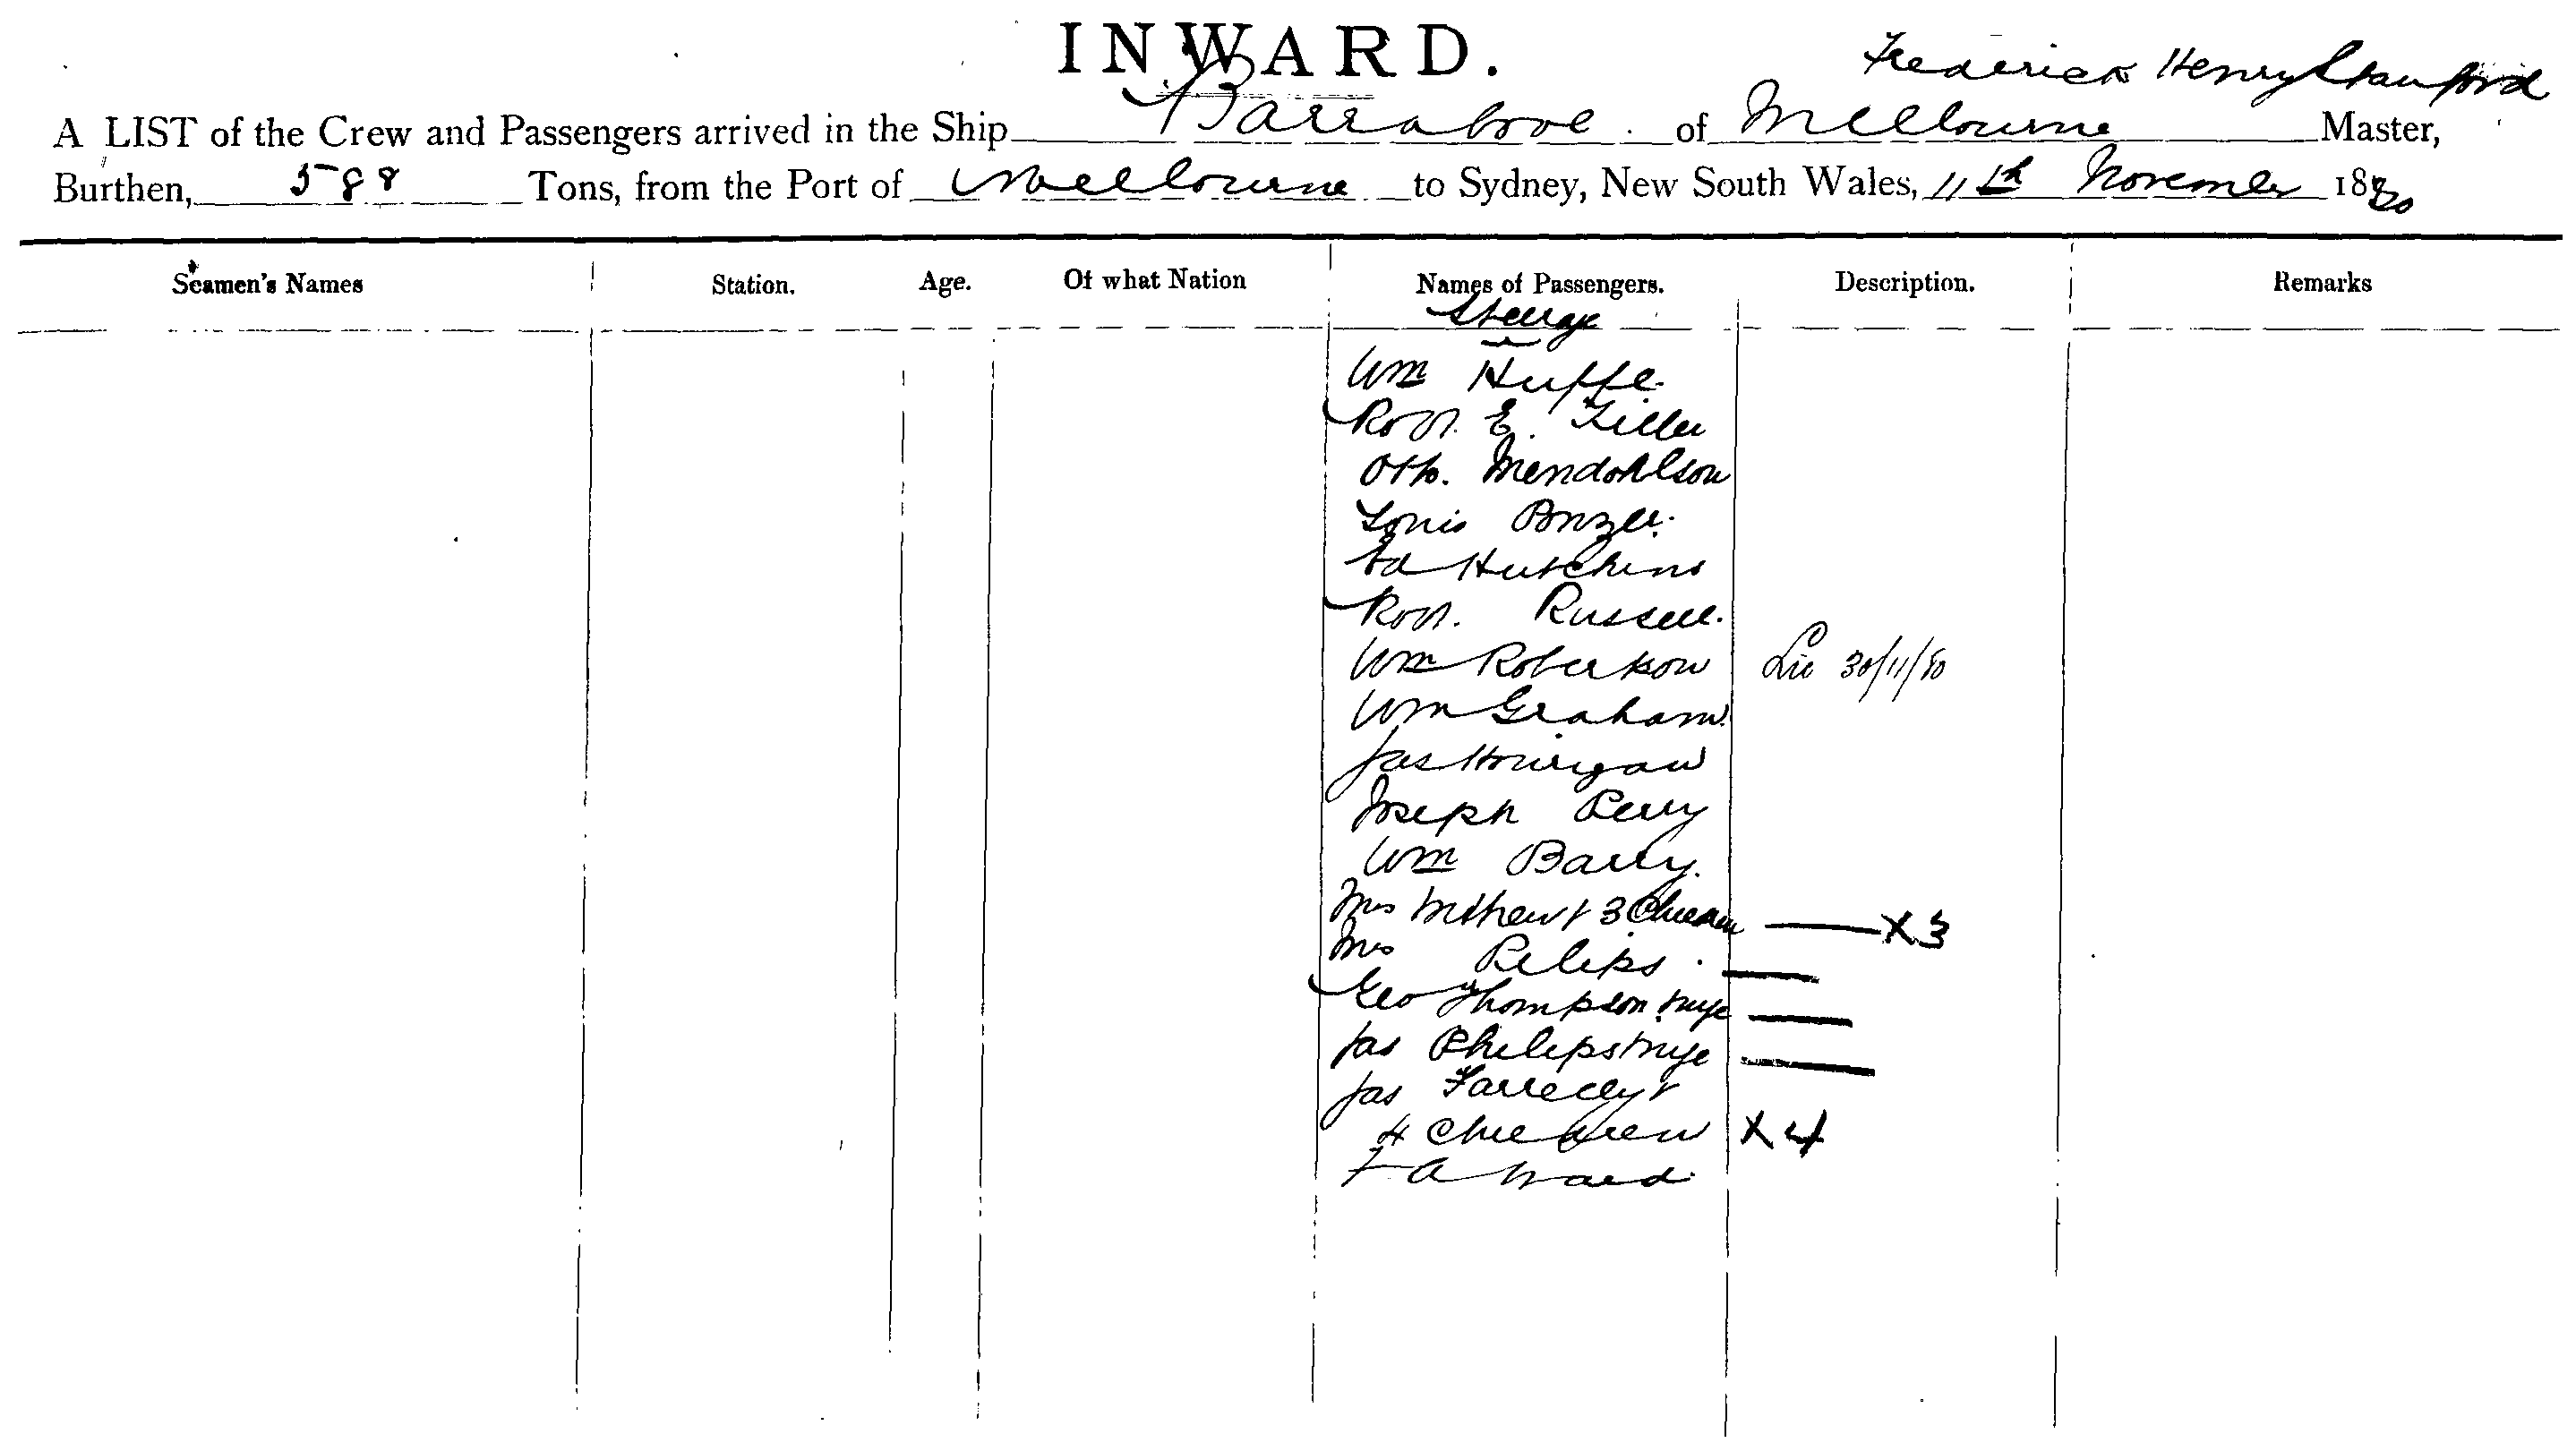 INWARD.
Frederick Henry Stanford
A LIST of the Crew and Passengers arrived in the Ship Barrabool of Melbourne Master,
Burthen, 588 Tons, from the Port of Melbourne to Sydney, New South Wales, 11th November 1880
Seamen's Names Station. Age. Of what Nation Names of Passengers. Description. Remarks
Steerage
Wm Huffe
Robt. E. Filler
Otto. Mendohlson
Louis
Ed Hutchins
Robt. Russell.
Wm Robertson 30/11/80
Wm Graham
Jas Hourigan
Joseph Perry
Wm Barry.
Mrs Mthew & 3 Children X3
Mrs Pelips
Geo Thompson & wife
Jas Philips & wife
Jas Farrelly &
4 Children X4
F A Ward